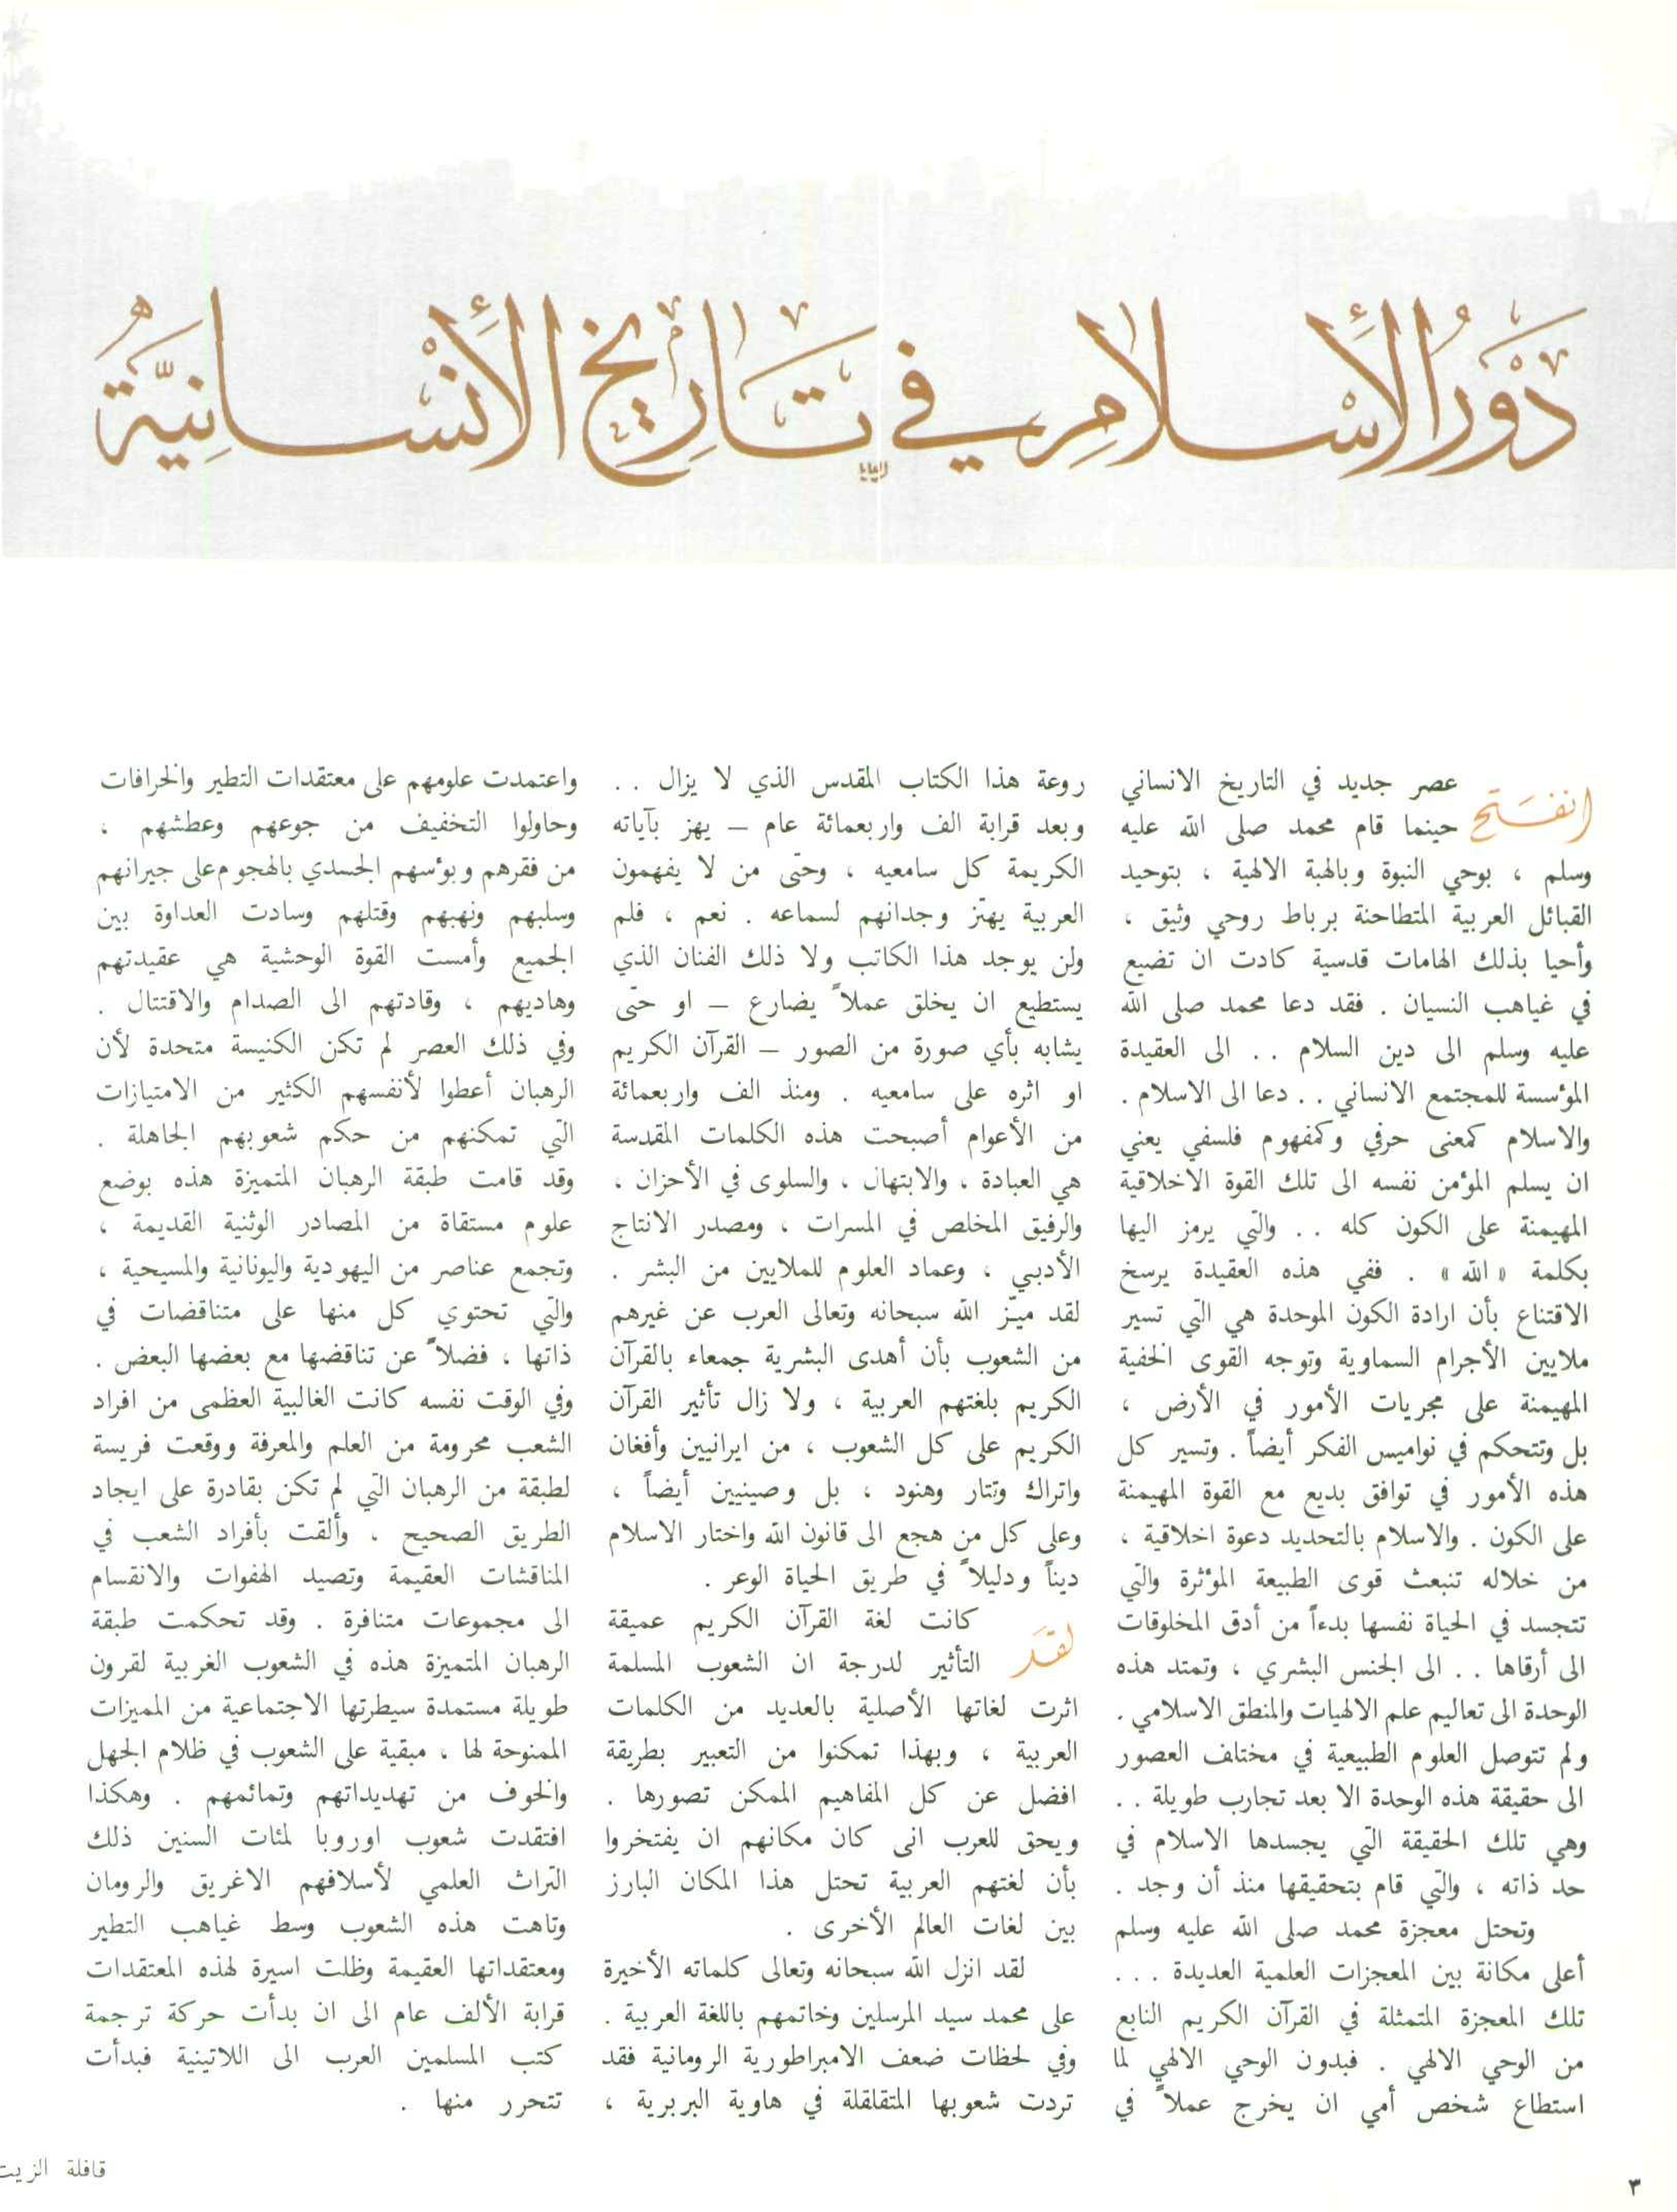 دَوْرُ الأِسْلامِ فِي تَارِيخِ الأِنْسَانِيَّةُ
انفتح عصر جديد في التاريخ الانساني
حينما قام محمد صلى الله عليه
وسلم ، بوحي النبوة وبالهبة الالهية ، بتوحيد
القبائل العربية المتطاحنة برباط روحي وثيق ،
وأحيا بذلك الهامات قدسية كادت ان تضيع
في غياهب النسيان . فقد دعا محمد صلى الله
عليه وسلم الى دين السلام .. الى العقيدة
المؤسسة للمجتمع الانساني .. دعا الى الاسلام .
والاسلام كمعنى حرفي وكمفهوم فلسفي يعني
ان يسلم المؤمن نفسه الى تلك القوة الاخلاقية
المهيمنة على الكون كله .. والتي يرمز اليها
بكلمة « الله » . ففي هذه العقيدة يرسخ
الاقتناع بأن ارادة الكون الموحدة هي التي تسير
ملايين الأجرام السماوية وتوجه القوى الخفية
المهيمنة على مجريات الأمور في الأرض ،
بل وتتحكم في نواميس الفكر أيضاً . وتسير كل
هذه الأمور في توافق بديع مع القوة المهيمنة
على الكون . والاسلام بالتحديد دعوة اخلاقية ،
من خلاله تنبعث قوى الطبيعة المؤثرة والتي
تتجسد في الحياة نفسها بدءاً من أدق المخلوقات
الى أرقاها .. الى الجنس البشري ، وتمتد هذه
الوحدة الى تعاليم علم الالهيات والمنطق الاسلامي .
ولم تتوصل العلوم الطبيعية في مختلف العصور
الى حقيقة هذه الوحدة الا بعد تجارب طويلة ..
وهي تلك الحقيقة التي يجسدها الاسلام في
حد ذاته ، والتي قام بتحقيقها منذ أن وجد .
وتحتل معجزة محمد صلى الله عليه وسلم
أعلى مكانة بين المعجزات العلمية العديدة ...
تلك المعجزة المتمثلة في القرآن الكريم النابع
من الوحي الالهي . فبدون الوحي الالهي لما
استطاع شخص أمي ان يخرج عملاً في
روعة هذا الكتاب المقدس الذي لا يزال ..
وبعد قرابة الف واربعمائة عام – يهز بآياته
الكريمة كل سامعيه ، وحتى من لا يفهمون
العربية يهتز وجدانهم لسماعه . نعم ، فلم
ولن يوجد هذا الكاتب ولا ذلك الفنان الذي
يستطيع ان يخلق عملاً يضارع – او حتى
يشابه بأي صورة من الصور – القرآن الكريم
او اثره على سامعيه . ومنذ الف واربعمائة
من الأعوام أصبحت هذه الكلمات المقدسة
هي العبادة ، والابتهال ، والسلوى في الأحزان ،
والرفيق المخلص في المسرات ، ومصدر الانتاج
الأدبي ، وعماد العلوم للملايين من البشر .
لقد ميّز الله سبحانه وتعالى العرب عن غيرهم
من الشعوب بأن أهدى البشرية جمعاء بالقرآن
الكريم بلغتهم العربية ، ولا زال تأثير القرآن
الكريم على كل الشعوب ، من ايرانيين وأفغان
واتراك وتتار وهنود ، بل وصينيين أيضاً ،
وعلى كل من هجع الى قانون الله واختار الاسلام
ديناً ودليلاً في طريق الحياة الوعر .
لقد كانت لغة القرآن الكريم عميقة
التأثير لدرجة ان الشعوب المسلمة
اثرت لغاتها الأصلية بالعديد من الكلمات
العربية ، وبهذا تمكنوا من التعبير بطريقة
افضل عن كل المفاهيم الممكن تصورها .
ويحق للعرب انى كان مكانهم ان يفتخروا
بأن لغتهم العربية تحتل هذا المكان البارز
بين لغات العالم الأخرى .
لقد انزل الله سبحانه وتعالى كلماته الأخيرة
على محمد سيد المرسلين وخاتمهم باللغة العربية .
وفي لحظات ضعف الامبراطورية الرومانية فقد
تردت شعوبها المتقلقلة في هاوية البربرية ،
واعتمدت علومهم على معتقدات التطير والخرافات
وحاولوا التخفيف من جوعهم وعطشهم ،
من فقرهم وبؤسهم الجسدي بالهجوم على جيرانهم
وسلبهم ونهبهم وقتلهم وسادت العداوة بين
الجميع وأمست القوة الوحشية هي عقيدتهم
وهاديهم ، وقادتهم الى الصدام والاقتتال .
وفي ذلك العصر لم تكن الكنيسة متحدة لأن
الرهبان أعطوا لأنفسهم الكثير من الامتيازات
التي تمكنهم من حكم شعوبهم الجاهلة .
وقد قامت طبقة الرهبان المتميزة هذه بوضع
علوم مستقاة من المصادر الوثنية القديمة ،
وتجمع عناصر من اليهودية واليونانية والمسيحية ،
والتي تحتوي كل منها على متناقضات في
ذاتها ، فضلاً عن تناقضها مع بعضها البعض .
وفي الوقت نفسه كانت الغالبية العظمى من افراد
الشعب محرومة من العلم والمعرفة ووقعت فريسة
لطبقة من الرهبان التي لم تكن بقادرة على ايجاد
الطريق الصحيح . وألقت بأفراد الشعب في
المناقشات العقيمة وتصيد الهفوات والانقسام
الى مجموعات متنافرة . وقد تحكمت طبقة
الرهبان المتميزة هذه في الشعوب الغربية لقرون
طويلة مستمدة سيطرتها الاجتماعية من المميزات
الممنوحة لها ، مبقية على الشعوب في ظلام الجهل
والخوف من تهديداتهم وتمائمهم . وهكذا
افتقدت شعوب اوروبا لمئات السنين ذلك
التراث العلمي لأسلافهم الاغريق والرومان
وتاهت هذه الشعوب وسط غياهب التطير
ومعتقداتها العقيمة وظلت اسيرة لهذه المعتقدات
قرابة الألف عام الى ان بدأت حركة ترجمة
كتب المسلمين العرب الى اللاتينية فبدأت
تتحرر منها .
٣
قافلة الزيت